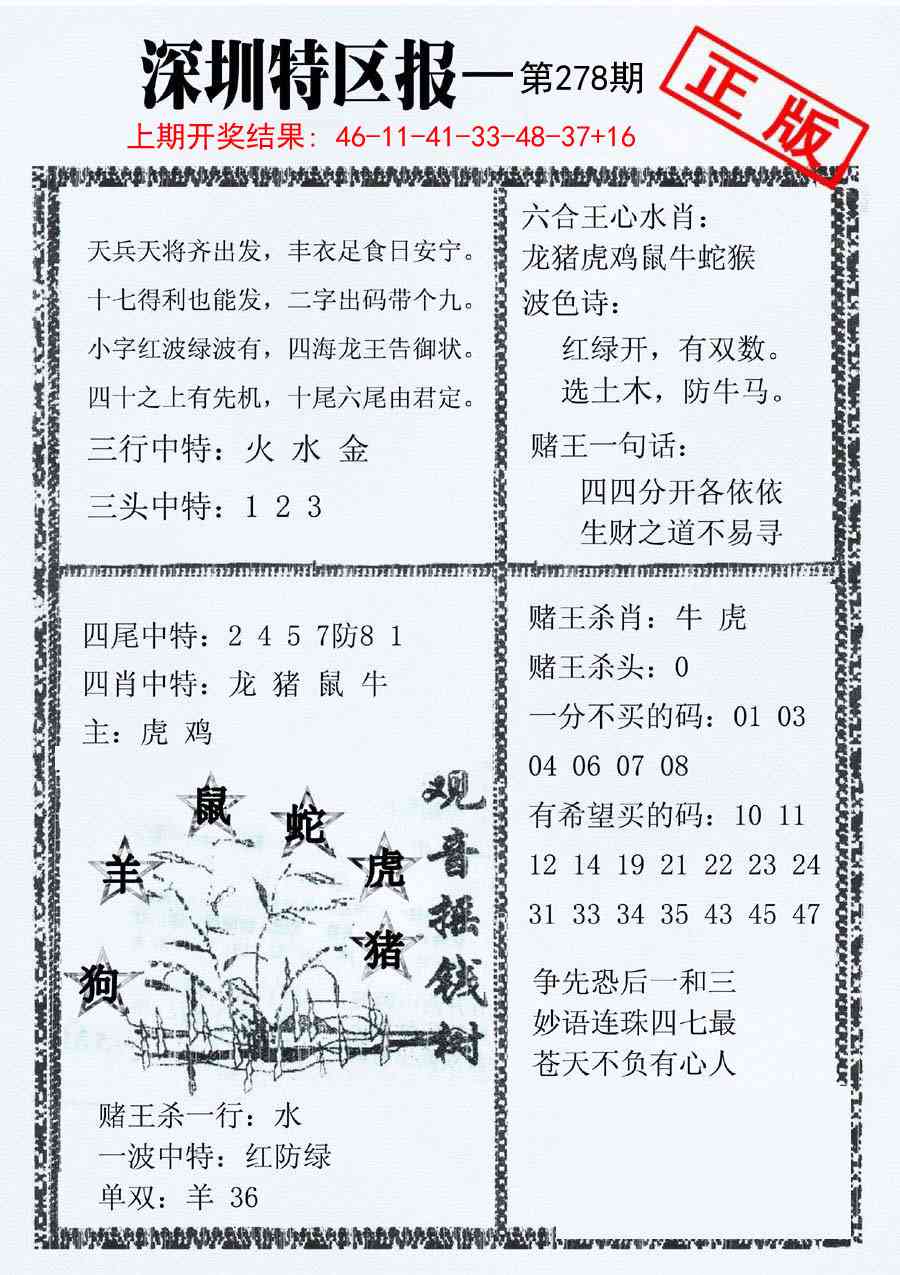 深圳特区报—第278期
正版
上期开奖结果：46-11-41-33-48-37+16
天兵天将齐出发，丰衣足食日安宁。
十七得利也能发，二字出码带个九。
小字红波绿波有，四海龙王告御状。
四十之上有先机，十尾六尾由君定。
三行中特：火 水 金
三头中特：1 2 3
六合王心水肖：
龙猪虎鸡鼠牛蛇猴
波色诗：
红绿开，有双数。
选土木，防牛马。
赌王一句话：
四四分开各依依
生财之道不易寻
四尾中特：2 4 5 7防8 1
四肖中特：龙 猪 鼠 牛
主：虎 鸡
鼠
蛇
羊
虎
猪
狗
观音摇钱树
赌王杀一行：水
一波中特：红防绿
单双：羊 36
赌王杀肖：牛 虎
赌王杀头：0
一分不买的码：01 03
04 06 07 08
有希望买的码：10 11
12 14 19 21 22 23 24
31 33 34 35 43 45 47
争先恐后一和三
妙语连珠四七最
苍天不负有心人